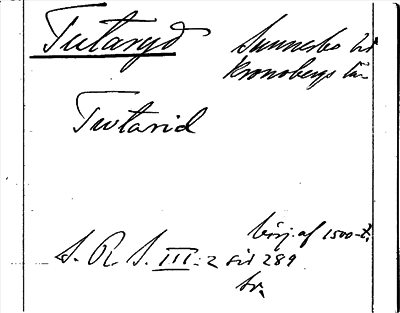 Tutaryd Sunnerbo hd
Kronobergs län
Twtarid
börj. af 1500-t.
S. R. S. III: 2 sid 289
br.